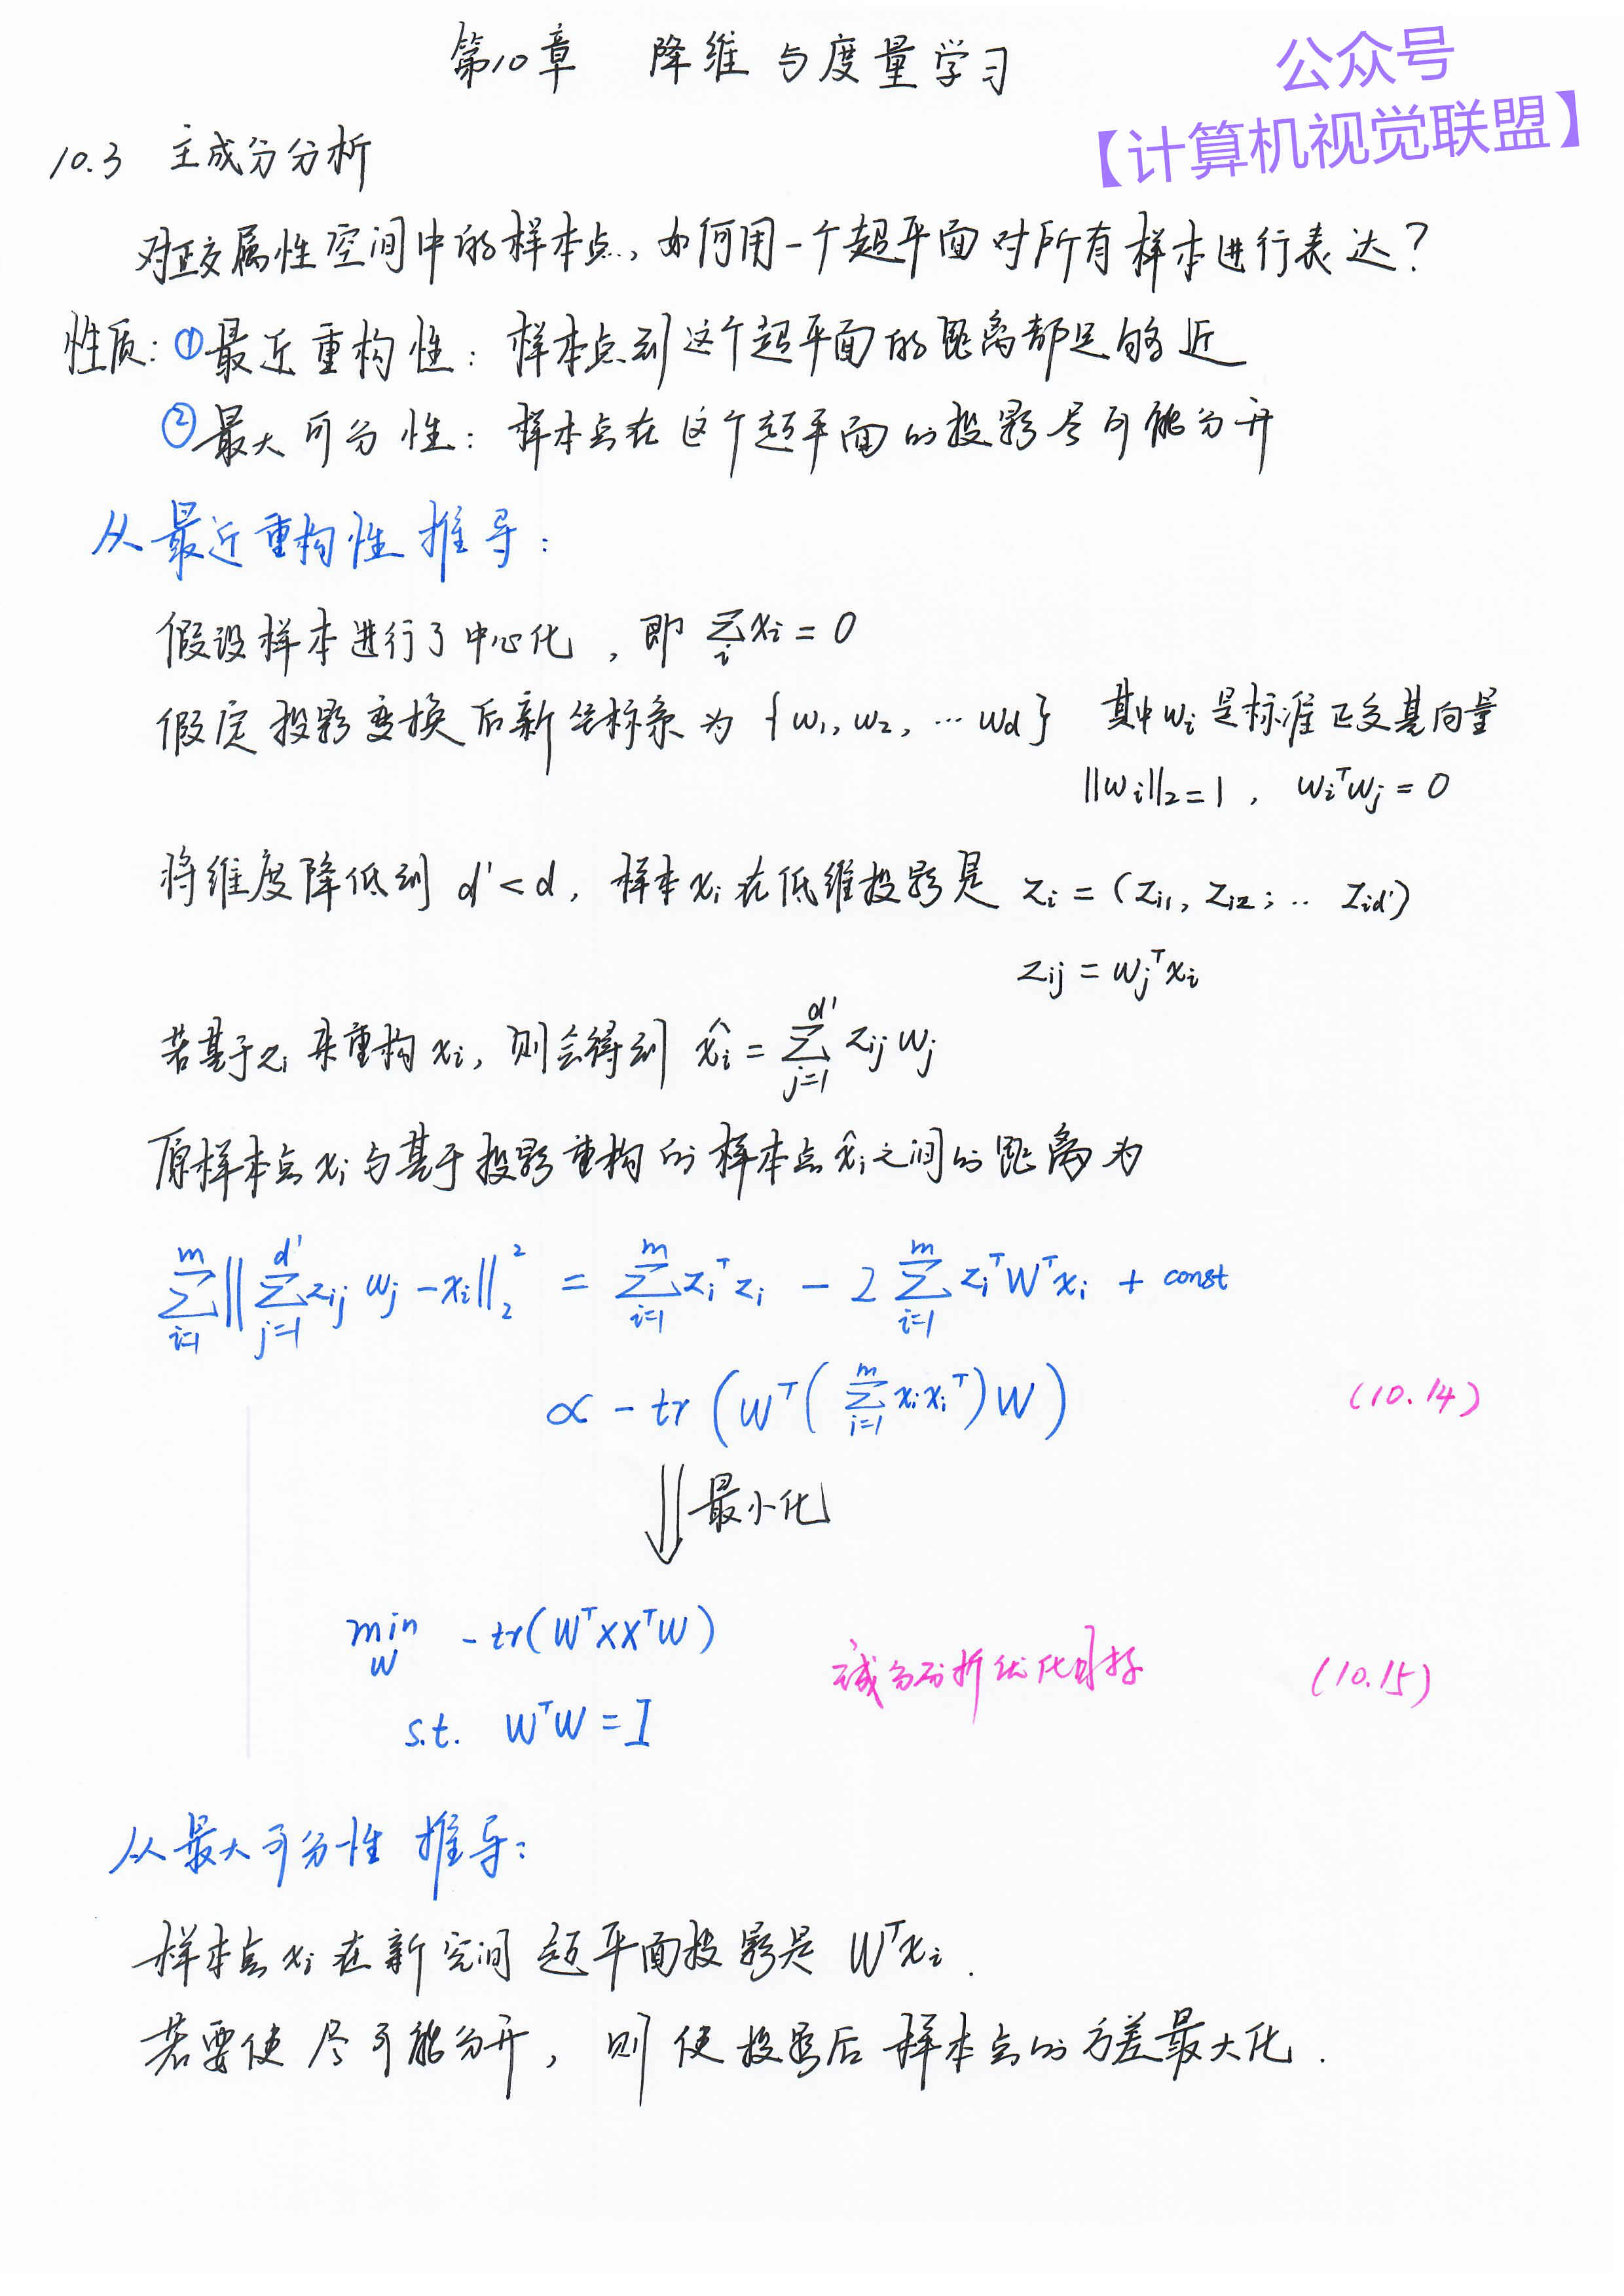 第10章 降维与度量学习
公众号
【计算机视觉联盟】
10.3 主成分分析
对正交属性空间中的样本点，如何用一个超平面对所有样本进行表达？
性质：①最近重构性：样本点到这个超平面的距离都足够近
②最大可分性：样本点在这个超平面的投影尽可能分开
从最近重构性推导：
假设样本进行了中心化，即 ∑_i x_i = 0
假定投影变换后新坐标系为 {w₁, w₂, … w_d} 其中w_i是标准正交基向量
||w_i||₂ = 1， w_i^T w_j = 0
将维度降低到 d' < d，样本x_i在低维投影是 z_i = (z_{i1}, z_{i2}; ‥ z_{id'})
z_{ij} = w_j^T x_i
若基于z_i来重构x_i，则会得到 x̂_i = ∑_{j=1}^{d'} z_{ij} w_j
原样本点x_i与基于投影重构的样本点x̂_i之间的距离为
∑_{i=1}^{m} ||∑_{j=1}^{d'} z_{ij} w_j − x_i||₂² = ∑_{i=1}^{m} z_i^T z_i − 2 ∑_{i=1}^{m} z_i^T W^T x_i + const
∝ − tr (W^T (∑_{i=1}^{m} x_i x_i^T) W) (10.14)
⇓ 最小化
min_W − tr(W^T X X^T W)
主成分分析优化目标 (10.15)
s.t. W^T W = I
从最大可分性推导：
样本点x_i在新空间超平面投影是 W^T x_i.
若要使尽可能分开，则使投影后样本点的方差最大化.